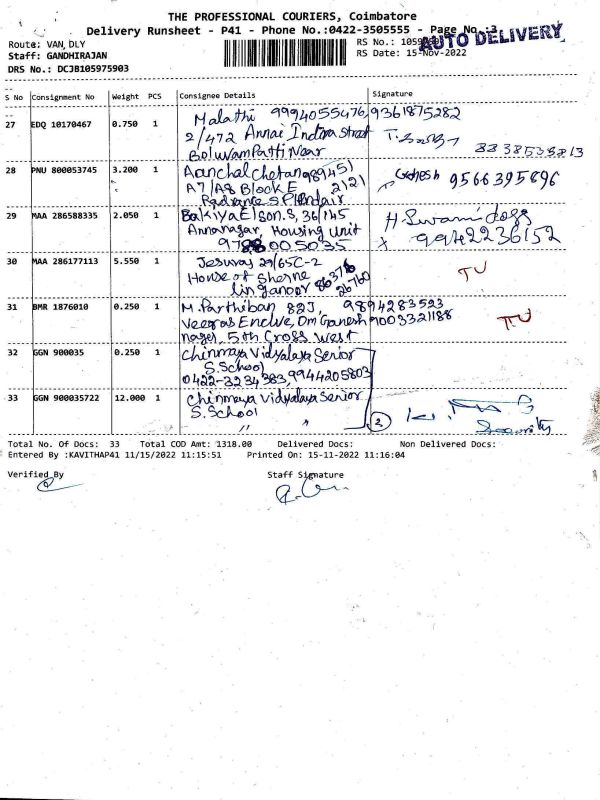 THE PROFESSIONAL COURIERS, Coimbatore
Delivery Runsheet - P41 - Phone No.:0422-3505555 - Page No.:3
AUTO DELIVERY
Route: VAN_DLY
RS No.:
Staff: GANDHIRAJAN
RS Date: 15-Nov-2022
DRS No.: DCJB105975903
S No Consignment No Weight PCS Consignee Details Signature
27 EDQ 10170467 0.750 1 Malathi 9994055476, 9361875282
2/472 Annai Indira Street
Boluvampatti Near
28 PNU 800053745 3.200 1 Aanchal Chetan
A7/A8 Block E 2121
9566395896
29 MAA 286588335 2.050 1 Bakiya Elson.S, 36/145
Annanagar, Housing Unit
9942236152
30 MAA 286177113 5.550 1 Jesuraj 29/65C-2
House of Sherne
Linganoor 86376 26760
TU
31 BMR 1876010 0.250 1 M. Parthiban 82J, 9894283523
Veegas Enclve, Om Ganesh 9003321188
nager, 5th Cross West
TU
32 GGN 900035 0.250 1 Chinmaya Vidyalaya Senior
S. School
0422-3234383, 9944205803
33 GGN 900035722 12.000 1 Chinmaya Vidyalaya Senior
S. School
" "
2
Total No. Of Docs: 33 Total COD Amt: 1318.00 Delivered Docs: Non Delivered Docs:
Entered By :KAVITHAP41 11/15/2022 11:15:51 Printed On: 15-11-2022 11:16:04
Verified By Staff Signature